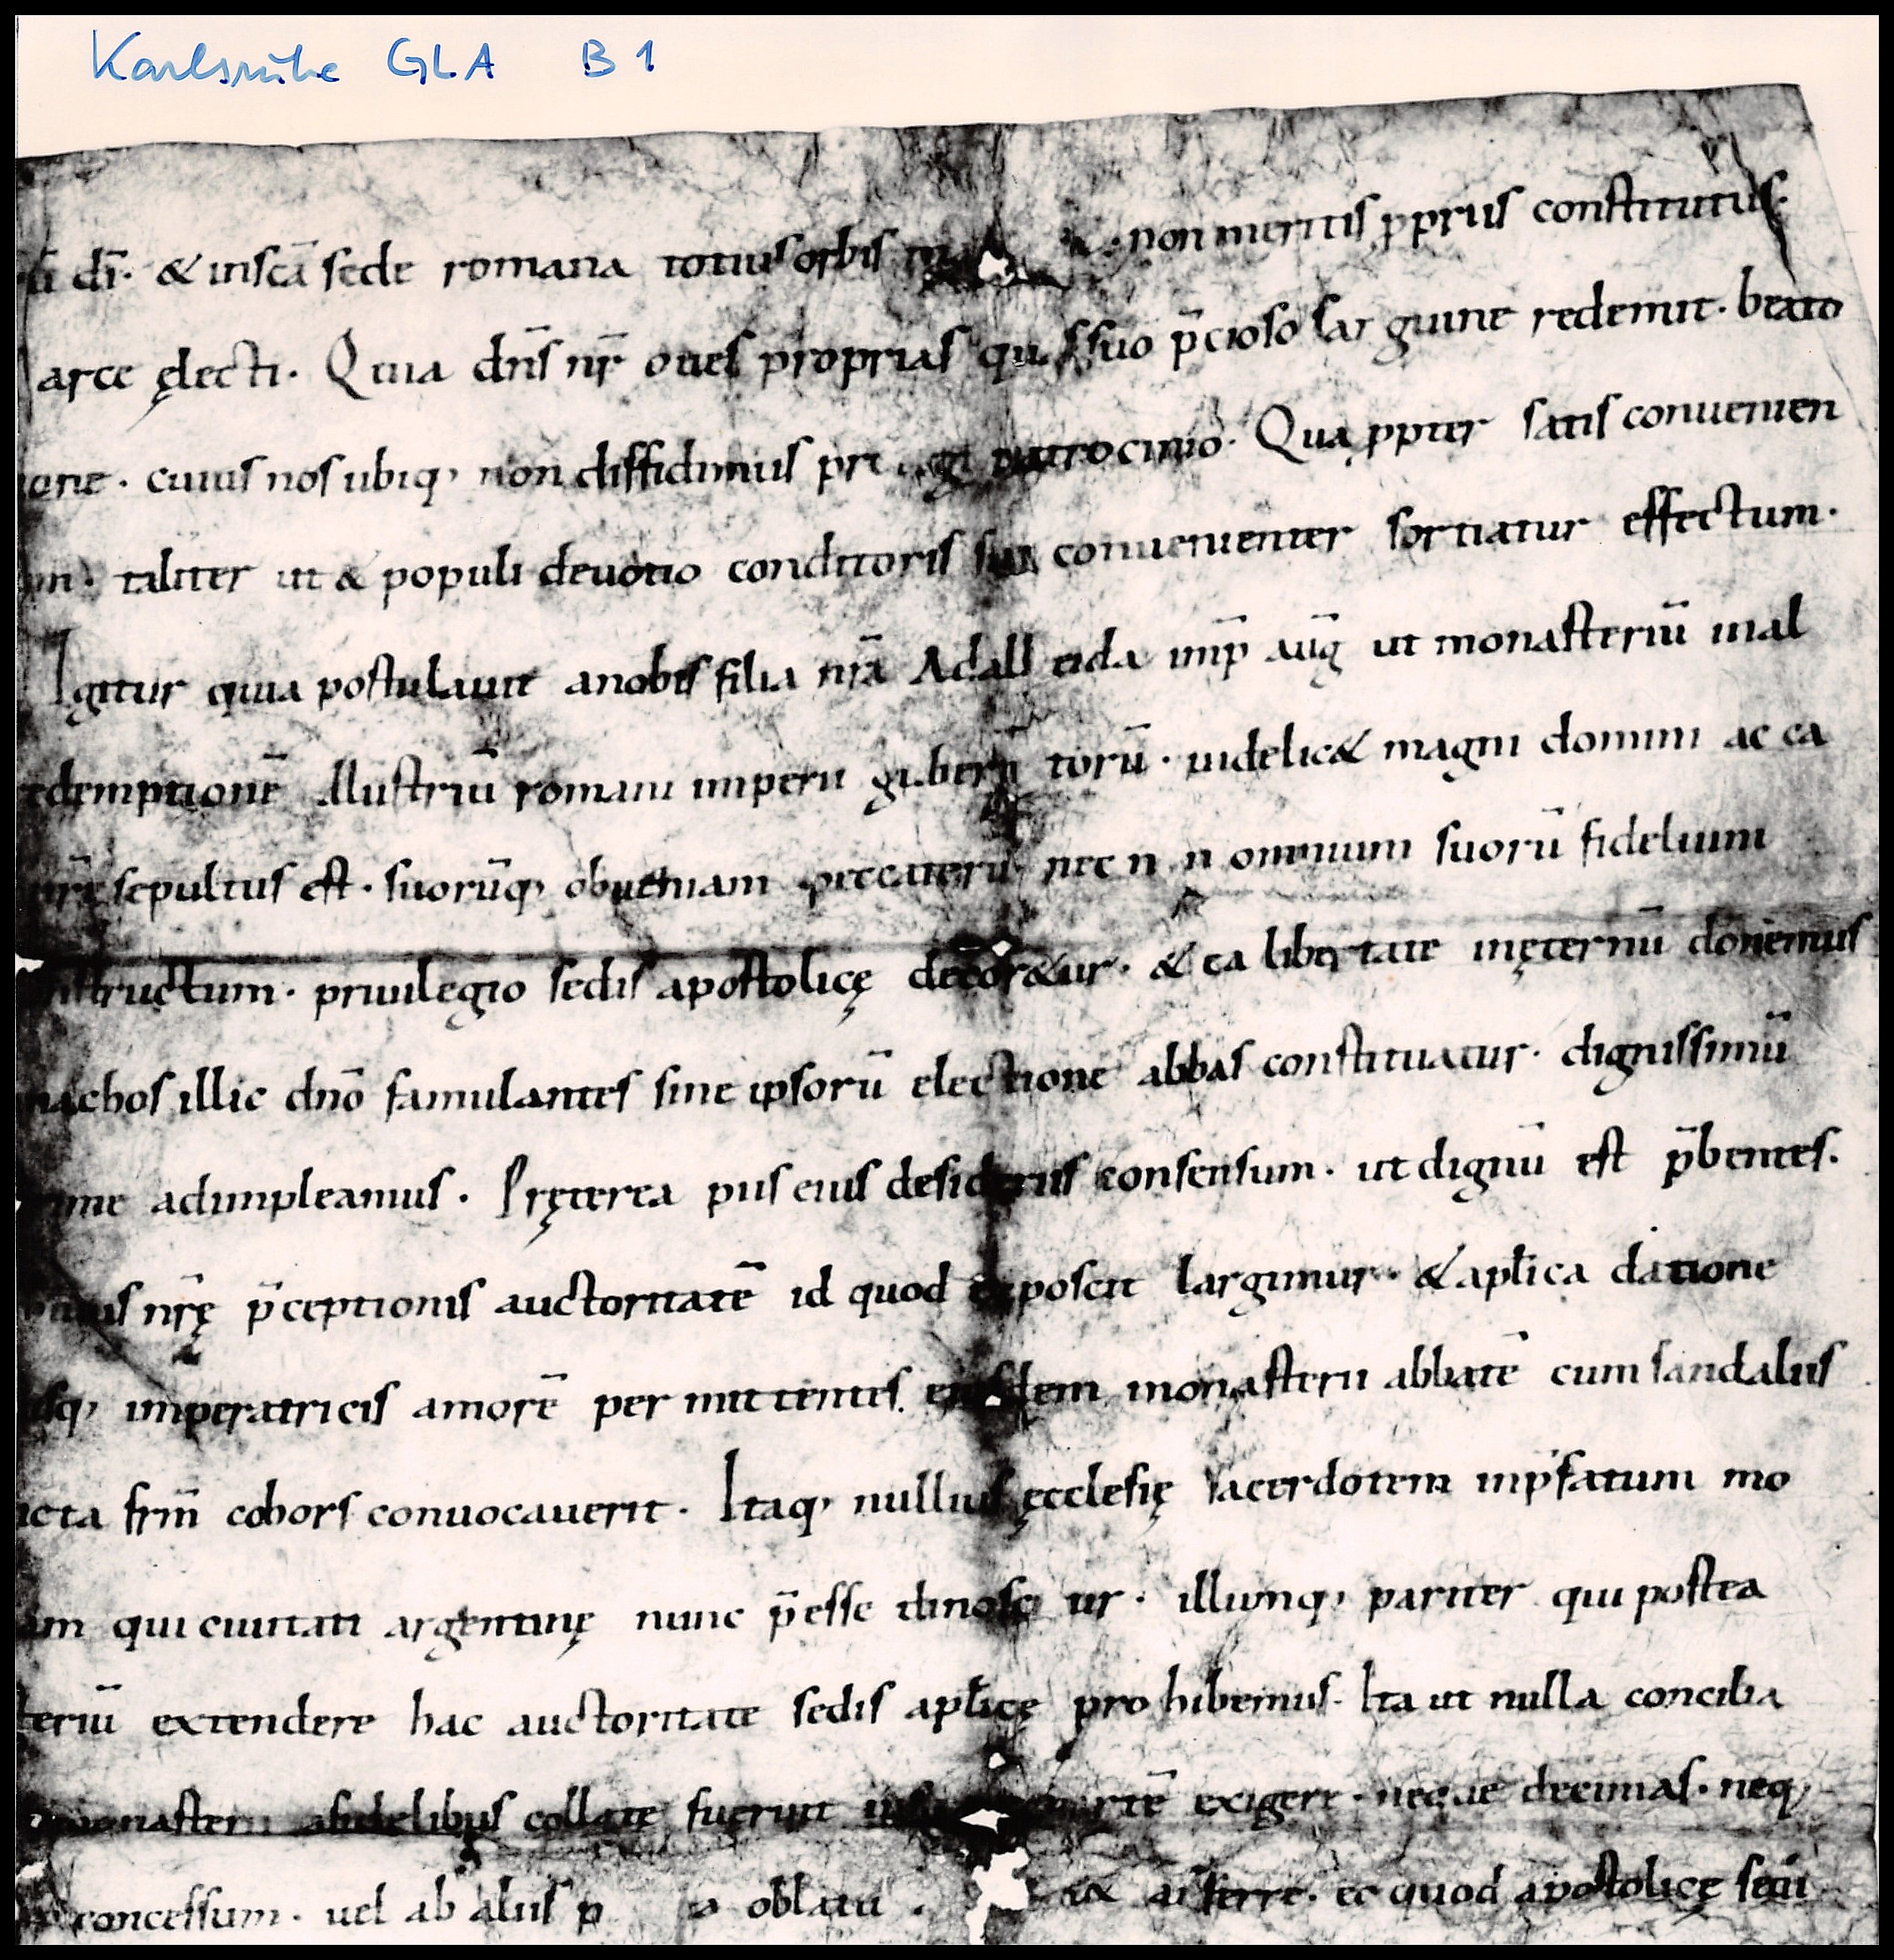 Karlsruhe GLA B 1
dī · & inscā sede romana totius orbis non meritis pprius constitutus ·
arce electi · Quia dn̄s nr̄ oues proprias suo p̄cioso sanguine redemit · beato
cuius nos ubiq; non diffidimus patrocinio · Quapp̱ter satis conuenien
taliter ut & populi deuotio conditoris sui conuenienter sortiatur effectum ·
Igitur quia postulauit anobis filia nrā Adall eida imp̄ aūg ut monasteriū inal
edemptionē illustriū romani imperii guberna torū · uidelic& magni domini ac ca
sepultus est · suorūq; obueniam peccatorū nec n n omnium suorū fidelium
structum · priuilegio sedis apostolicę decor&ur · & ea libertate inęternū donemus
nachos illic dn̄o famulantes sine ipsorū electione abbas constituatur · dignissimū
adimpleamus · Pręterea piis eius desideriis consensum · ut dignū est p̄bentes ·
nr̄ę p̄ceptionis auctoritatē id quod exposcit largimur · & aplica datione
sq; imperatricis amorē per mittentes eiusdem monasterii abbatē cum sandaliis
cta frm̄ cohors conuocauerit · Itaq; nullius ęcclesię sacerdotem inp̄fatum mo
qui ciuitati argentinę nunc p̄esse dinosc ur · illumq; pariter qui postea
teriū extendere hac auctoritate sedis aplicę pro hibemus · Ita ut nulla concilia
monasterii afidelibus collate fuerint partē exigere · neque decimas · neq;
concessum · uel ab aliis oblatū · auferre · ec quod apostolicę